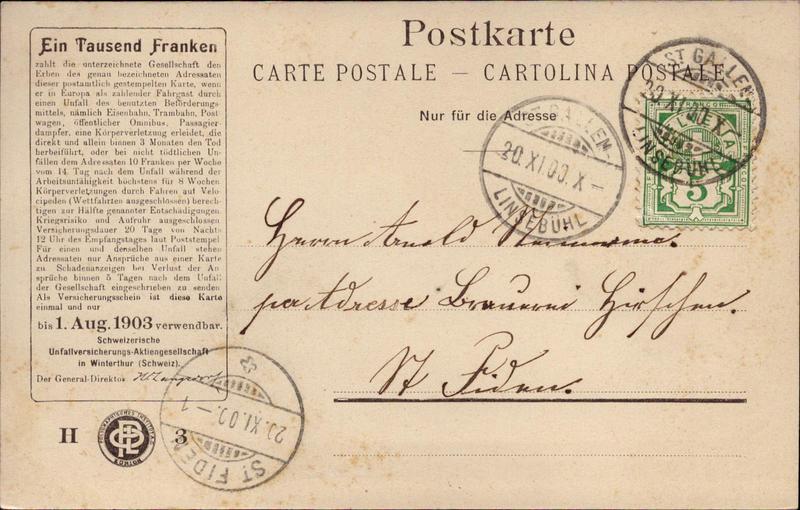 Ein Tausend Franken
zahlt die unterzeichnete Gesellschaft den
Erben des genau bezeichneten Adressaten
dieser postamtlich gestempelten Karte, wenn
er in Europa als zahlender Fahrgast durch
einen Unfall des benutzten Beförderungs-
mittels, nämlich Eisenbahn, Trambahn, Post
wagen, öffentlicher Omnibus, Passagier-
dampfer, eine Körperverletzung erleidet, die
direkt und allein binnen 3 Monaten den Tod
herbeiführt, oder bei nicht tödtlichen Un-
fällen dem Adressaten 10 Franken per Woche
vom 14. Tag nach dem Unfall während der
Arbeitsuntähigkeit höchstens für 8 Wochen
Körperverletzungen durch Fahren auf Velo-
cipeden (Wettfahrten ausgeschlossen) berech-
tigen zur Hälfte genannter Entschädigungen.
Kriegsrisiko und Aufruhr ausgeschlossen
Versicherungsdauer 20 Tage von Nachts
12 Uhr des Empfangstages laut Poststempel
Für einen und denselben Unfall stehen
Adressaten nur Ansprüche aus einer Karte
zu Schadenanzeigen bei Verlust der An-
sprüche binnen 5 Tagen nach dem Unfall
der Gesellschaft eingeschrieben zu senden
Als Versicherungsschein ist diese Karte
einmal und nur
bis 1. Aug. 1903 verwendbar.
Schweizerische
Unfallversicherungs-Aktiengesellschaft
in Winterthur (Schweiz).
Der General-Direktor
H 3
Postkarte
CARTE POSTALE — CARTOLINA POSTALE
Nur für die Adresse
ST. GALLEN-
20.XI.00.X-
LINSEBÜHL
ST. GALLEN-
20.XI.00.X
LINSEBÜHL
5
Herrn Arnold
per Adresse Brauerei Hirschen.
St Fiden.
20.XI.00.-1
ST. FIDEN